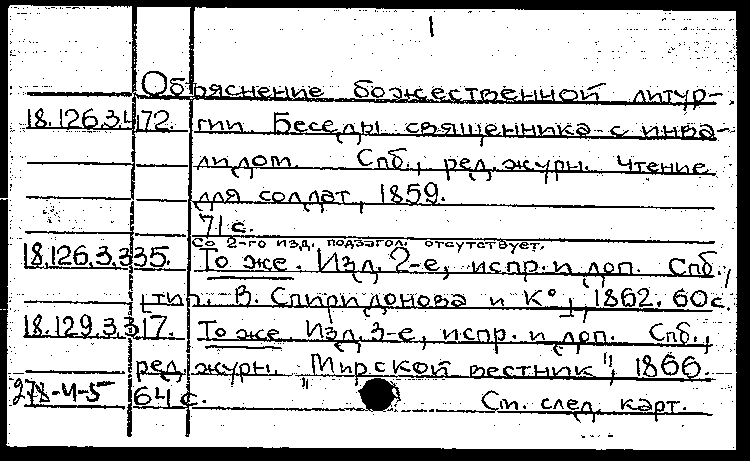 1
Объяснение божественной литур-
18.126.3.472. гии. Беседы священника с инва-
лидом. Спб., ред. журн. Чтение
для солдат, 1859.
71 с.
Со 2-го изд. подзагол. отсутствует.
18.126.3.335. То же. Изд. 2-е, испр. и доп. Спб.,
[тип. В. Спиридонова и К°], 1862. 60 с.
18.129.3.317. То же. Изд. 3-е, испр. и доп. Спб.,
ред. журн. "Мирской вестник", 1866.
278-4-5 64 с. См. след. карт.